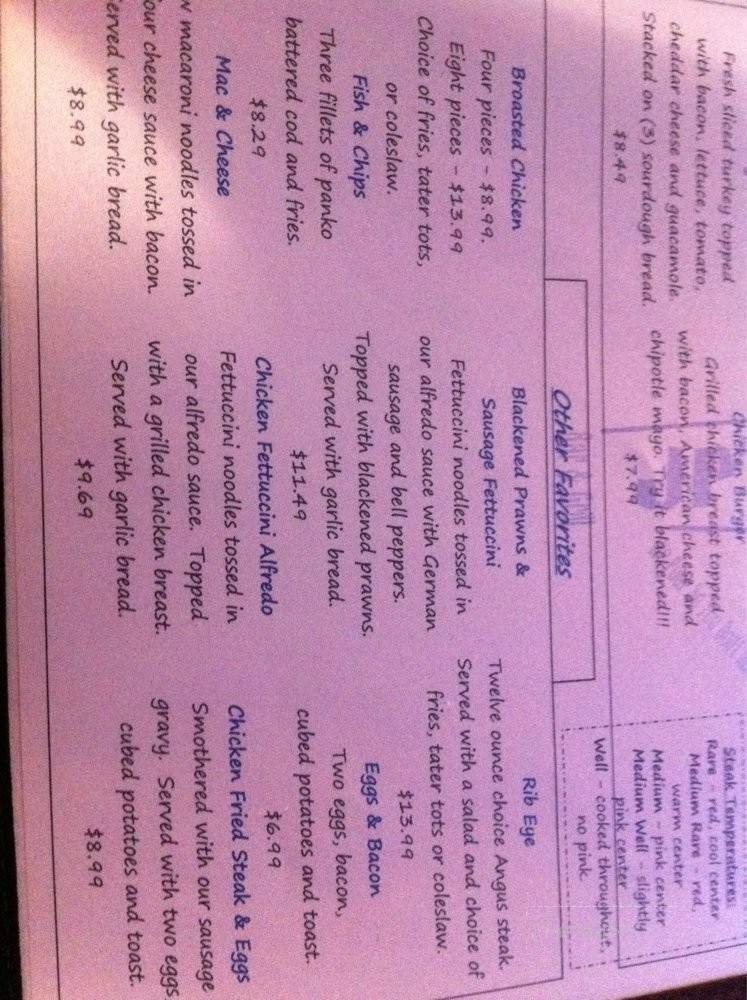 Fresh sliced turkey topped
with bacon, lettuce, tomato,
cheddar cheese and guacamole.
Stacked on (3) sourdough bread.
$8.49
Chicken Burger
Grilled chicken breast topped
with bacon, American cheese and
chipotle mayo. Try it blackened!!!
$7.99
Steak Temperatures:
Rare - red, cool center
Medium Rare - red,
warm center
Medium - pink center
Medium Well - slightly
pink center
Well - cooked throughout,
no pink.
Other Favorites
Broasted Chicken
Four pieces - $8.99.
Eight pieces - $13.99
Choice of fries, tater tots,
or coleslaw.
Fish & Chips
Three fillets of panko
battered cod and fries.
$8.29
Mac & Cheese
macaroni noodles tossed in
our cheese sauce with bacon.
erved with garlic bread.
$8.99
Blackened Prawns &
Sausage Fettuccini
Fettuccini noodles tossed in
our alfredo sauce with German
sausage and bell peppers.
Topped with blackened prawns.
Served with garlic bread.
$11.49
Chicken Fettuccini Alfredo
Fettuccini noodles tossed in
our alfredo sauce. Topped
with a grilled chicken breast.
Served with garlic bread.
$9.69
Rib Eye
Twelve ounce choice Angus steak.
Served with a salad and choice of
fries, tater tots or coleslaw.
$13.99
Eggs & Bacon
Two eggs, bacon,
cubed potatoes and toast.
$6.99
Chicken Fried Steak & Eggs
Smothered with our sausage
gravy. Served with two eggs
cubed potatoes and toast.
$8.99